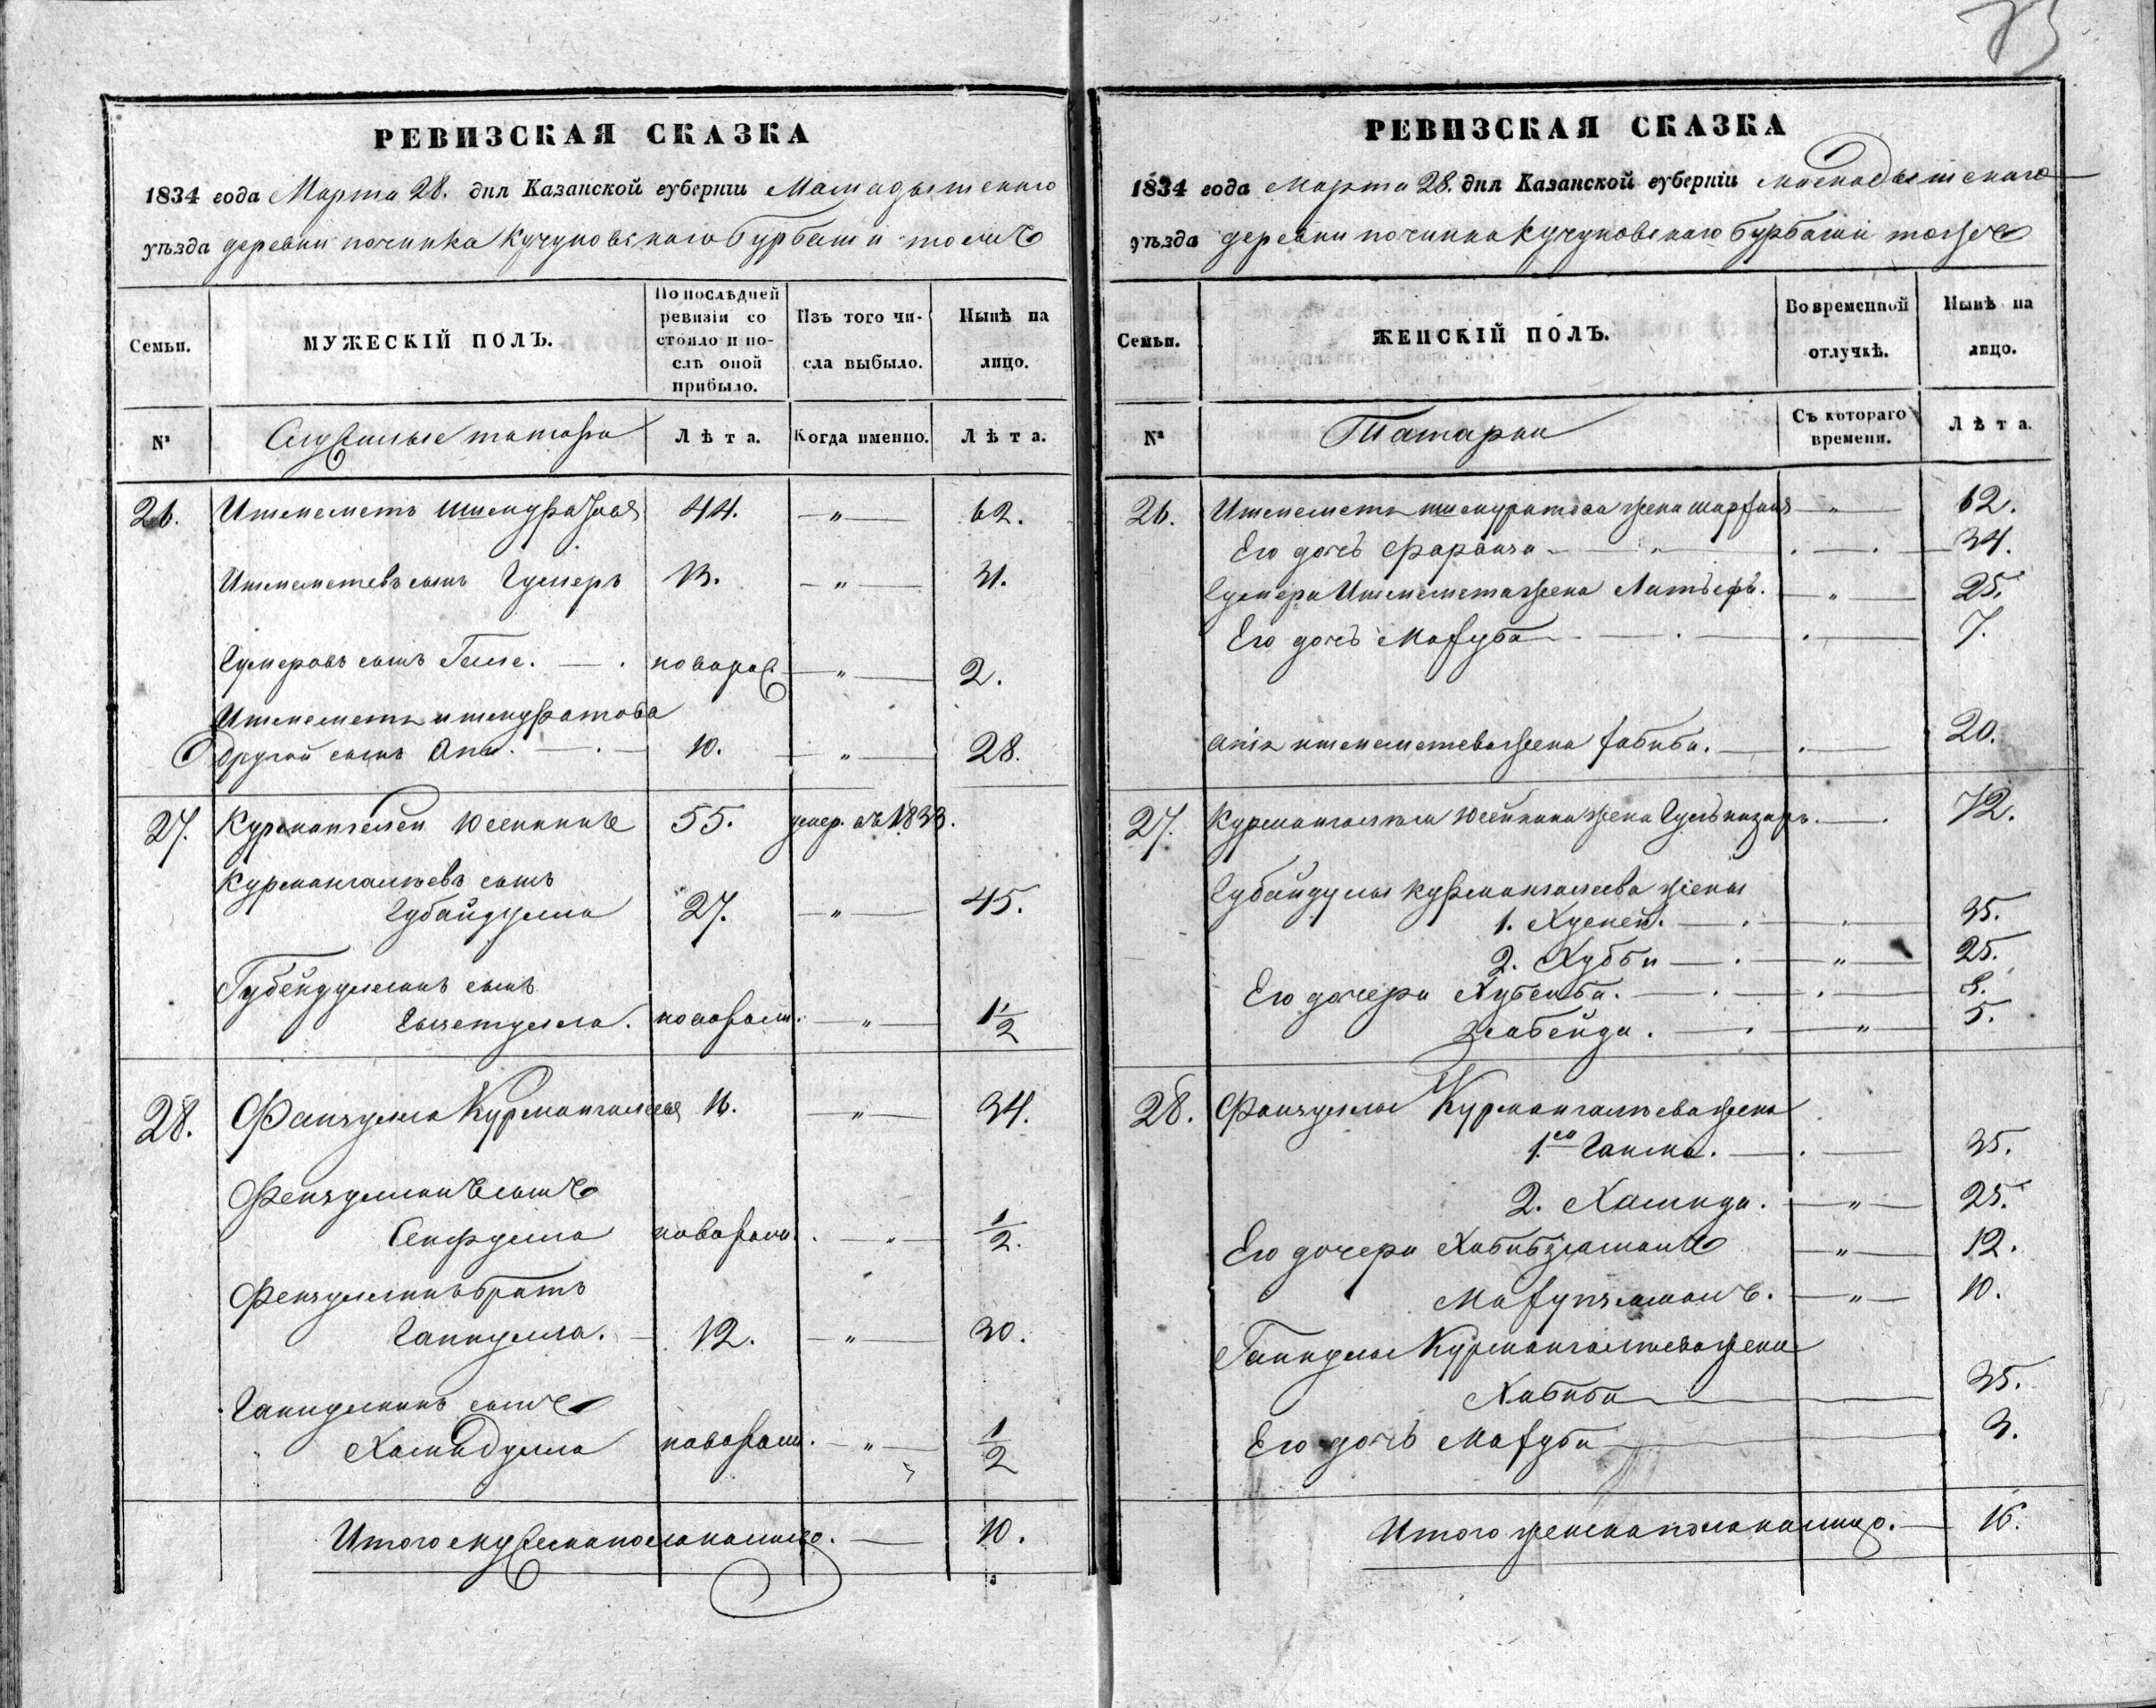 73
РЕВИЗСКАЯ СКАЗКА
1834 года Марта 28. дня Казанской губернiи Мамадышскаго
уѣзда деревни починка Кучуковскаго Бурбаши тожъ
Семьи.
МУЖЕСКIЙ ПОЛЪ.
По послѣдней ревизiи состояло и послѣ оной прибыло.
Изъ того числа выбыло.
Нынѣ на лицо.
№
Служилые татары
Лѣта.
Когда именно.
Лѣта.
26. Ишмеметь 44. — " — 62.
Ишмеметевъ сынъ Гумеръ 13. — " — 31.
Гумеровъ сынъ новорож. — " — 2.
Ишмеметь Ишмуратова
другой сынъ 10. — " — 28.
27. Курмангалей Юсеинъ 55. умер. въ 1833.
Курмангалѣевъ сынъ
Губайдулла 27. — " — 45.
Губейдуллинъ сынъ
новорожд. — " — 1 1/2
28. Фаизулла Курмангалеевъ 16. — " — 34.
Феизуллинъ сынъ
Сеифулла новорожд. — " — 1/2.
Феизуллинъ братъ
Ганиулла. 12. — " — 30.
Ганиуллинъ сынъ
Хамидулла новорожд. — " — 1/2
Итого мужеска пола на лицо. — 10.
РЕВИЗСКАЯ СКАЗКА
1834 года Марта 28. дня Казанской губернiи Мамадышскаго
уѣзда деревни починка Кучуковскаго Бурбаши тожъ
Семьи.
ЖЕНСКIЙ ПОЛЪ.
Во временной отлучкѣ.
Нынѣ на лицо.
№
Татарки
Съ котораго времени.
Лѣта.
26. Ишмеметь Ишмуратова жена — " — 62.
Его дочь — " — 34.
Гумера Ишмемета жена Латыфъ. — " — 25.
Его дочь Магуба — 7.
ишмеметева жена Габиба. — 20.
27. Курмангалѣя Юсеинова жена Гульназаръ. — 72.
Губайдуллы Курмангалеева жены
1. — 35.
2. Хубби — " — 25.
Его дочери — 8.
Зюбейда. — " — 5.
28. Фаизуллы Курмангалѣева жена
1.ая — 35.
2. Хамида. — " — 25.
Его дочери Хабибзямалъ — " — 12.
Магупзямалъ. — " — 10.
Ганиуллы Курмангалѣева жена
Хабиба — 35.
Его дочь Магуба — 3.
Итого женска пола на лицо. — 16.